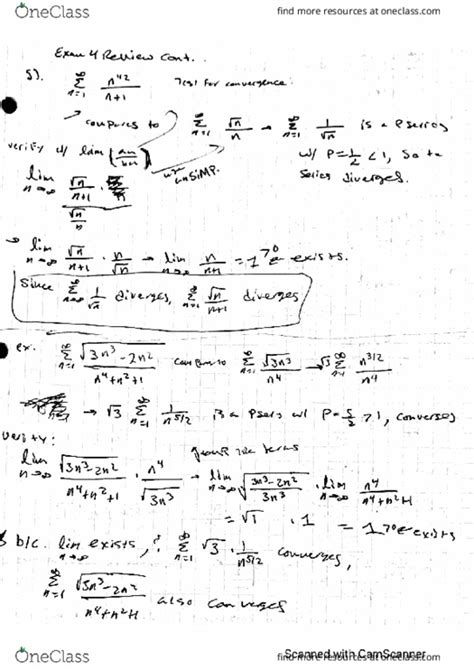 OneClass
find more resources at oneclass.com
Exam 4 Review Cont.
5). ∞Σn=1 n^1/2 / n+1 Test for convergence:
compares to ∞Σn=1 √n/n → ∞Σn=1 1/√n is a P series
verify w/ lim w/ P=1/2 <1, so the
series diverges.
lim n→∞ √n/n+1
√n/n
→ lim n→∞ √n/n+1 · n/√n → lim n→∞ n/n+1 = 1 >0 exists.
Since ∞Σ 1/√n diverges, ∞Σ √n/n+1 diverges
ex. ∞Σn=1 √3n³-2n² / n⁴+n²+1 compare to ∞Σn=1 √3n³/n⁴ → √3 ∞Σn=1 n^3/2 / n⁴
→ √3 ∞Σn=1 1/n^5/2 is a Pseries w/ P=5/2 >1, converges
Verify:
lim n→∞ √3n³-2n² / n⁴+n²+1 · n⁴/√3n³ → lim n→∞ √3n³-2n²/3n³ · lim n→∞ n⁴/n⁴+n²+1
= √1 · 1 = 1 >0 exists
b/c. lim n→∞ exists, ∞Σn=1 √3 · 1/n^5/2 converges,
∞Σn=1 √3n³-2n² / n⁴+n²+1 also converges
Scanned with CamScanner
OneClass
find more resources at oneclass.com